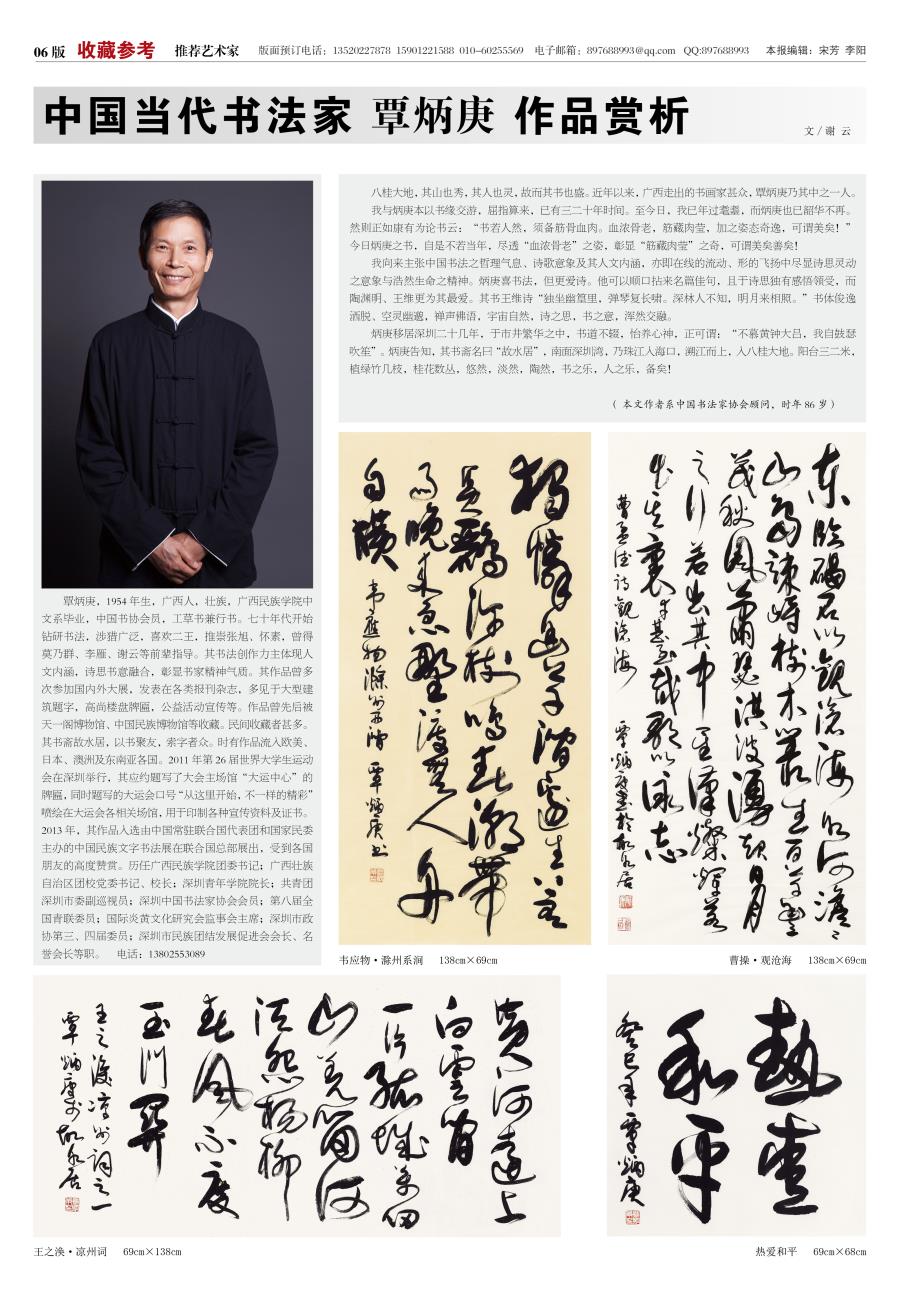 06 版 收藏参考 推荐艺术家 版面预订电话：13520227878 15901221588 010-60255569 电子邮箱：897688993@qq.com QQ:897688993 本报编辑：宋芳 李阳
中国当代书法家 覃炳庚 作品赏析
文／谢 云
八桂大地，其山也秀，其人也灵，故而其书也盛。近年以来，广西走出的书画家甚众，覃炳庚乃其中之一人。
我与炳庚本以书缘交游，屈指算来，已有三二十年时间。至今日，我已年过耄耋，而炳庚也已韶华不再。
然则正如康有为论书云：“书若人然，须备筋骨血肉。血浓骨老，筋藏肉莹，加之姿态奇逸，可谓美矣！”
今日炳庚之书，自是不若当年，尽透“血浓骨老”之姿，彰显“筋藏肉莹”之奇，可谓美矣善矣！
我向来主张中国书法之哲理气息、诗歌意象及其人文内涵，亦即在线的流动、形的飞扬中尽显诗思灵动
之意象与浩然生命之精神。炳庚喜书法，但更爱诗。他可以顺口拈来名篇佳句，且于诗思独有感悟领受，而
陶渊明、王维更为其最爱。其书王维诗“独坐幽篁里，弹琴复长啸。深林人不知，明月来相照。”书体俊逸
洒脱、空灵幽邈，禅声佛语，宇宙自然，诗之思，书之意，浑然交融。
炳庚移居深圳二十几年，于市井繁华之中，书道不辍，怡养心神，正可谓：“不慕黄钟大吕，我自鼓瑟
吹笙”。炳庚告知，其书斋名曰“故水居”，南面深圳湾，乃珠江入海口，溯江而上，入八桂大地。阳台三二米，
植绿竹几枝，桂花数丛，悠然，淡然，陶然，书之乐，人之乐，备矣！
（本文作者系中国书法家协会顾问，时年 86 岁）
覃炳庚，1954 年生，广西人，壮族，广西民族学院中
文系毕业，中国书协会员，工草书兼行书。七十年代开始
钻研书法，涉猎广泛，喜欢二王，推崇张旭、怀素，曾得
莫乃群、李雁、谢云等前辈指导。其书法创作力主体现人
文内涵，诗思书意融合，彰显书家精神气质。其作品曾多
次参加国内外大展，发表在各类报刊杂志，多见于大型建
筑题字，高尚楼盘牌匾，公益活动宣传等。作品曾先后被
天一阁博物馆、中国民族博物馆等收藏。民间收藏者甚多。
其书斋故水居，以书聚友，索字者众。时有作品流入欧美、
日本、澳洲及东南亚各国。2011 年第 26 届世界大学生运动
会在深圳举行，其应约题写了大会主场馆“大运中心”的
牌匾，同时题写的大运会口号“从这里开始，不一样的精彩”
喷绘在大运会各相关场馆，用于印制各种宣传资料及证书。
2013 年，其作品入选由中国常驻联合国代表团和国家民委
主办的中国民族文字书法展在联合国总部展出，受到各国
朋友的高度赞赏。历任广西民族学院团委书记；广西壮族
自治区团校党委书记、校长；深圳青年学院院长；共青团
深圳市委副巡视员；深圳中国书法家协会会员；第八届全
国青联委员；国际炎黄文化研究会监事会主席；深圳市政
协第三、四届委员；深圳市民族团结发展促进会会长、名
誉会长等职。 电话：13802553089
独怜幽草涧边生上有
黄鹂深树鸣春潮带
雨晚来急野渡无人舟
自横
韦应物滁州西涧 覃炳庚书
韦应物·滁州系涧 138cm×69cm
东临碣石以观沧海水何澹澹
山岛竦峙树木丛生百草丰
茂秋风萧瑟洪波涌起日月
之行若出其中星汉灿烂若
出其里幸甚至哉歌以咏志
曹孟德诗观沧海 覃炳庚书于故水居
曹操·观沧海 138cm×69cm
黄河远上
白云间
一片孤城万仞
山羌笛何
须怨杨柳
春风不度
玉门关
王之涣凉州词之一
覃炳庚书于故水居
王之涣·凉州词 69cm×138cm
热爱
和平
癸巳年覃炳庚
热爱和平 69cm×68cm